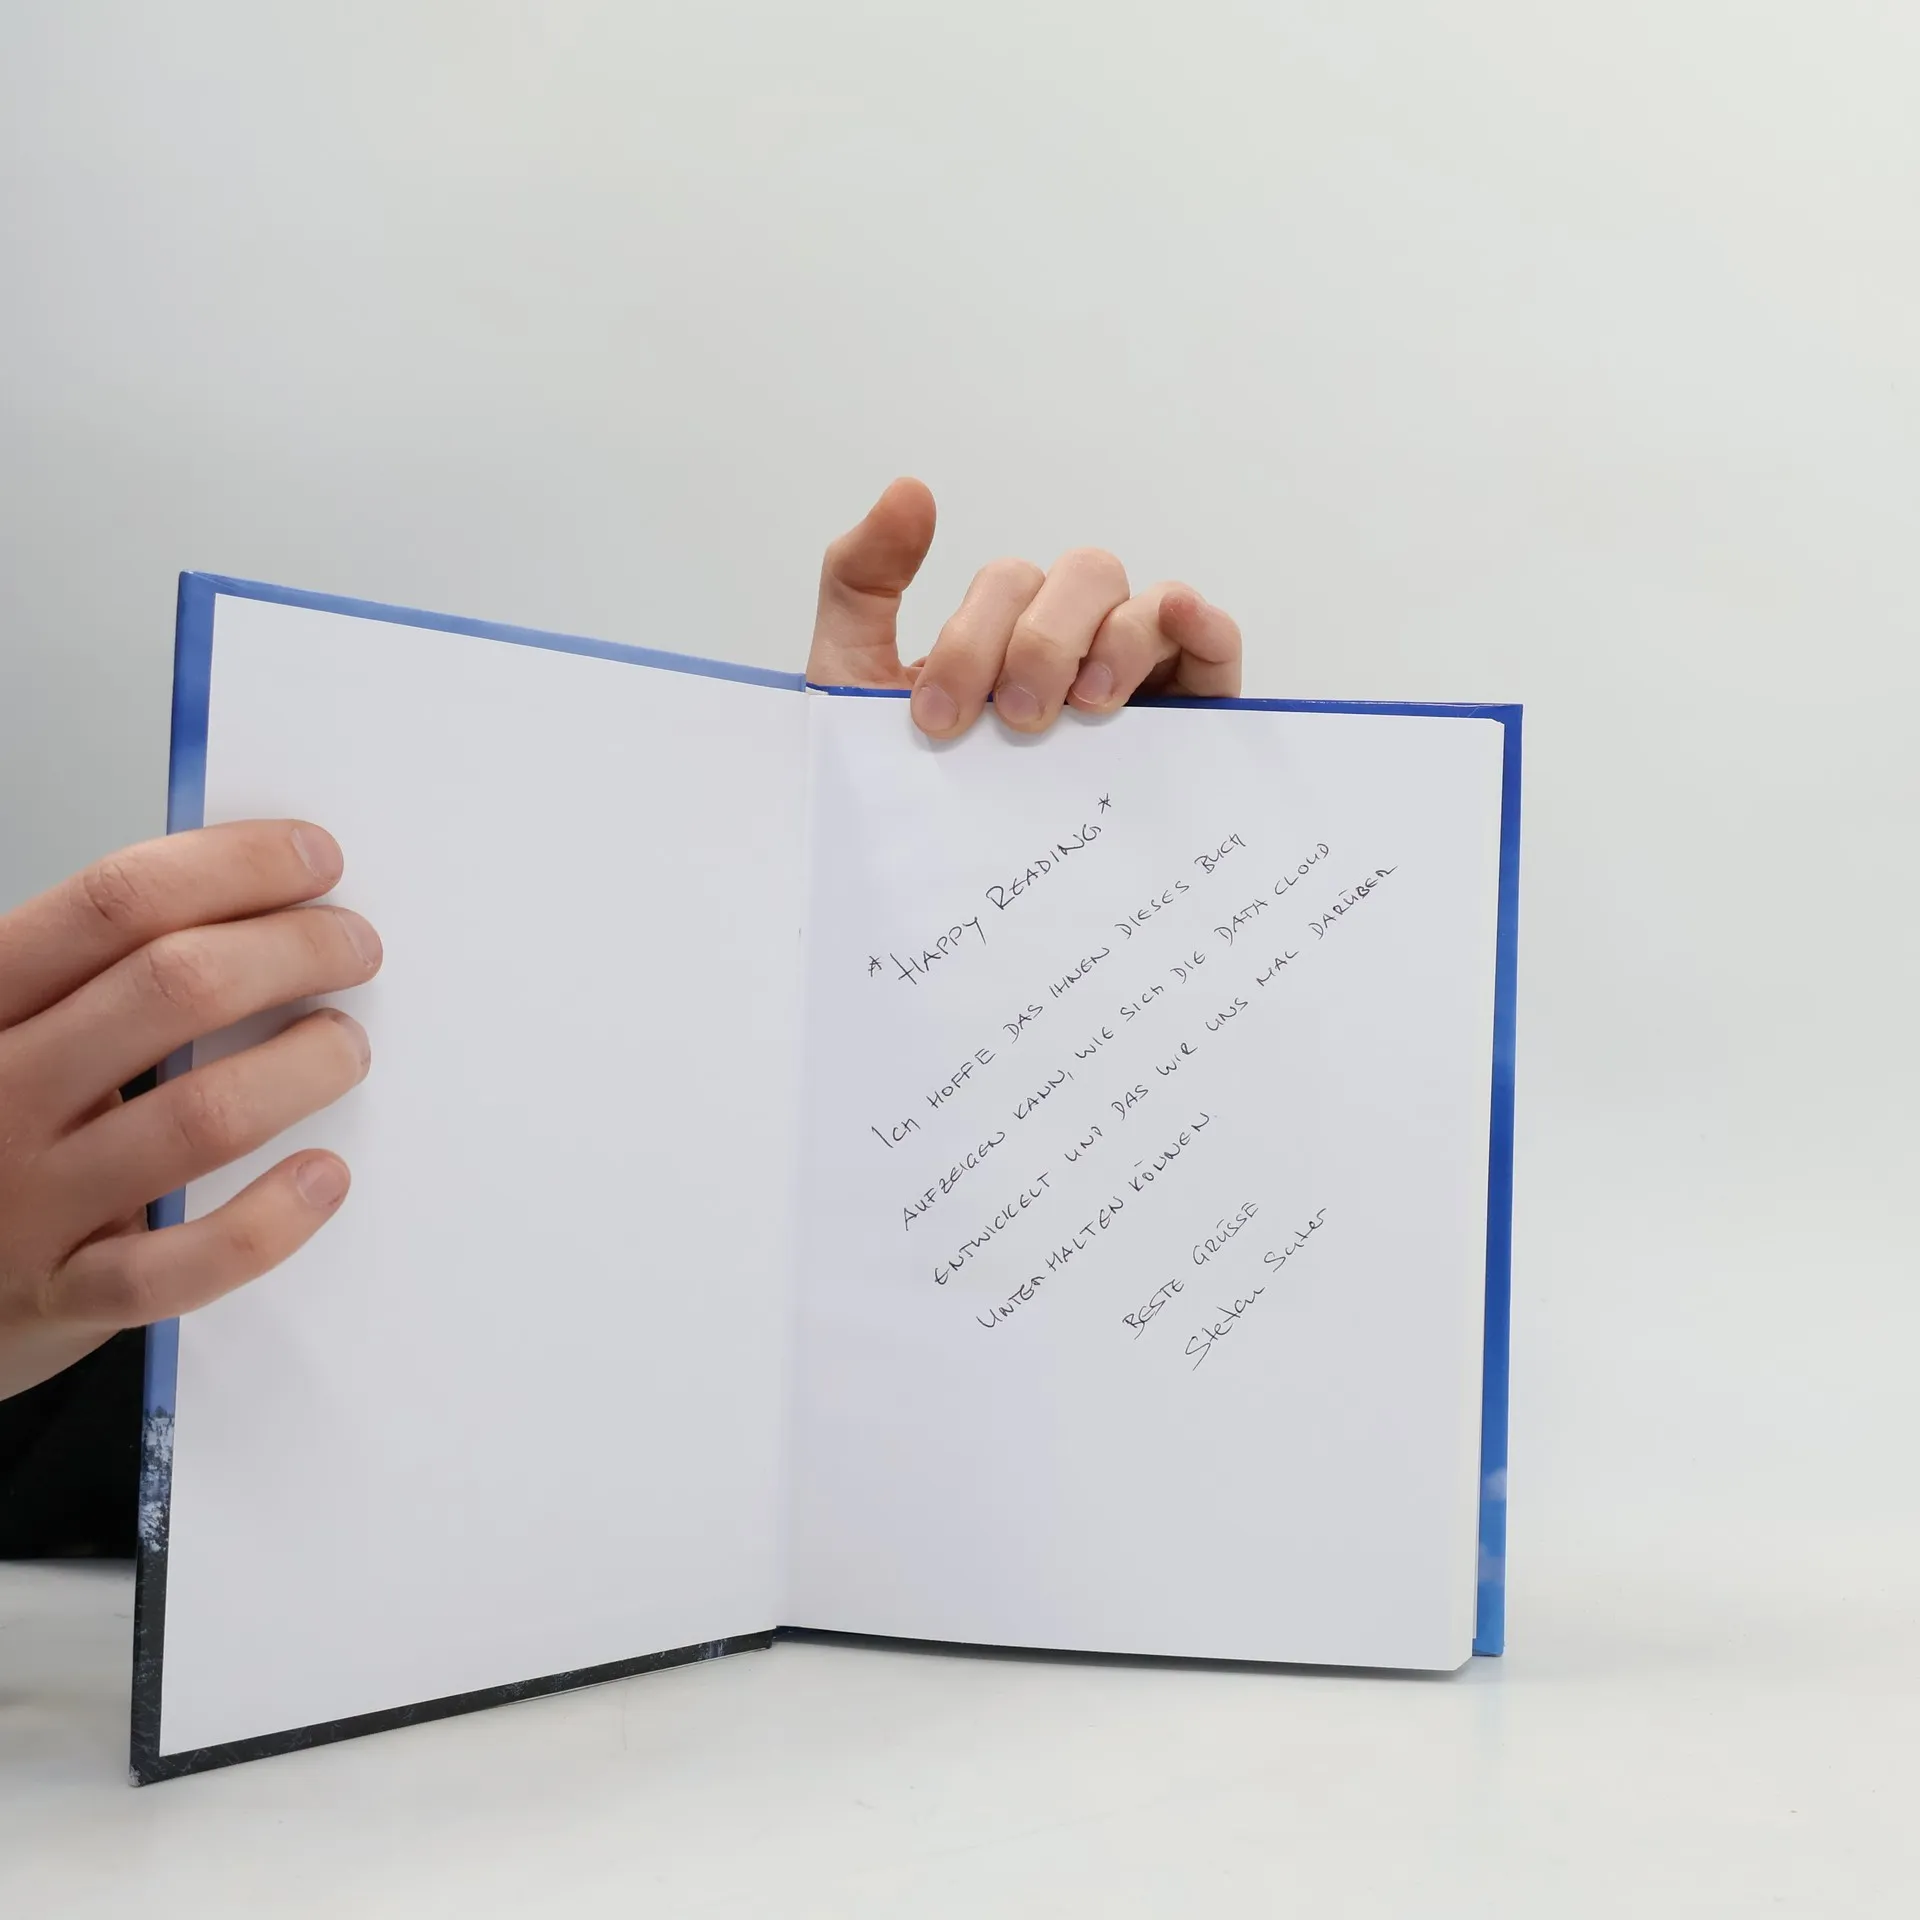 *HAPPY READING*
ICH HOFFE DAS IHNEN DIESES BUCH
AUFZEIGEN KANN, WIE SICH DIE DATA CLOUD
ENTWICKELT UND DAS WIR UNS MAL DARÜBER
UNTERHALTEN KÖNNEN.
BESTE GRÜSSE
Stefan Suter